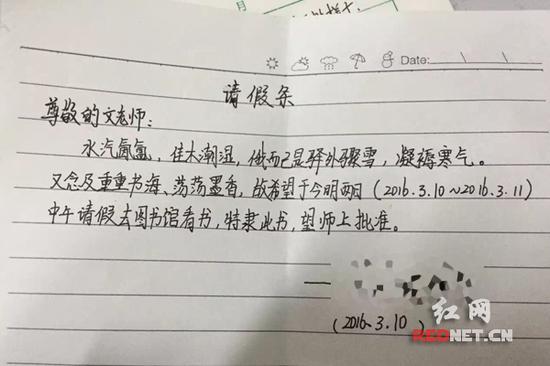 Date:
请假条
尊敬的文老师：
水汽氤氲，佳木潮湿，俄而已是驿外骤雪，凝褥寒气。
又念及重重书海、荡荡墨香，故希望于今明两日（2016.3.10~2016.3.11）
中午请假去图书馆看书，特隶此书，望师上批准。
（2016.3.10）
红网
REDNET.CN